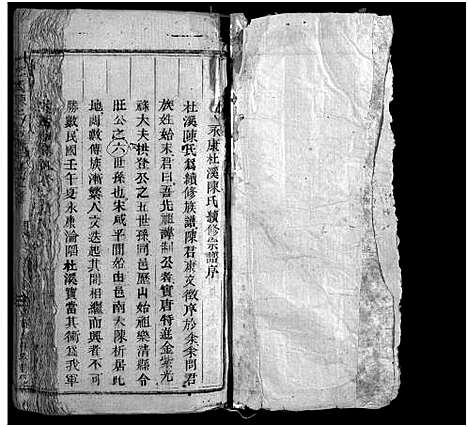 永康杜溪陳氏續修宗譜序
杜溪陳氏爲續修族譜陳君康文徵序於余余問君
族姓始末君曰吾先祖諱制公者實唐特進金紫光
祿大夫拱登公之五世孫同邑歷山始祖樂清縣令
莊公之六世孫也宋咸平間始由邑南大陳析居此
地商數傳族漸繁人文迭起其間相繼而興者不可
勝數民國壬午夏永康淪陷杜溪實當其衝爲我軍